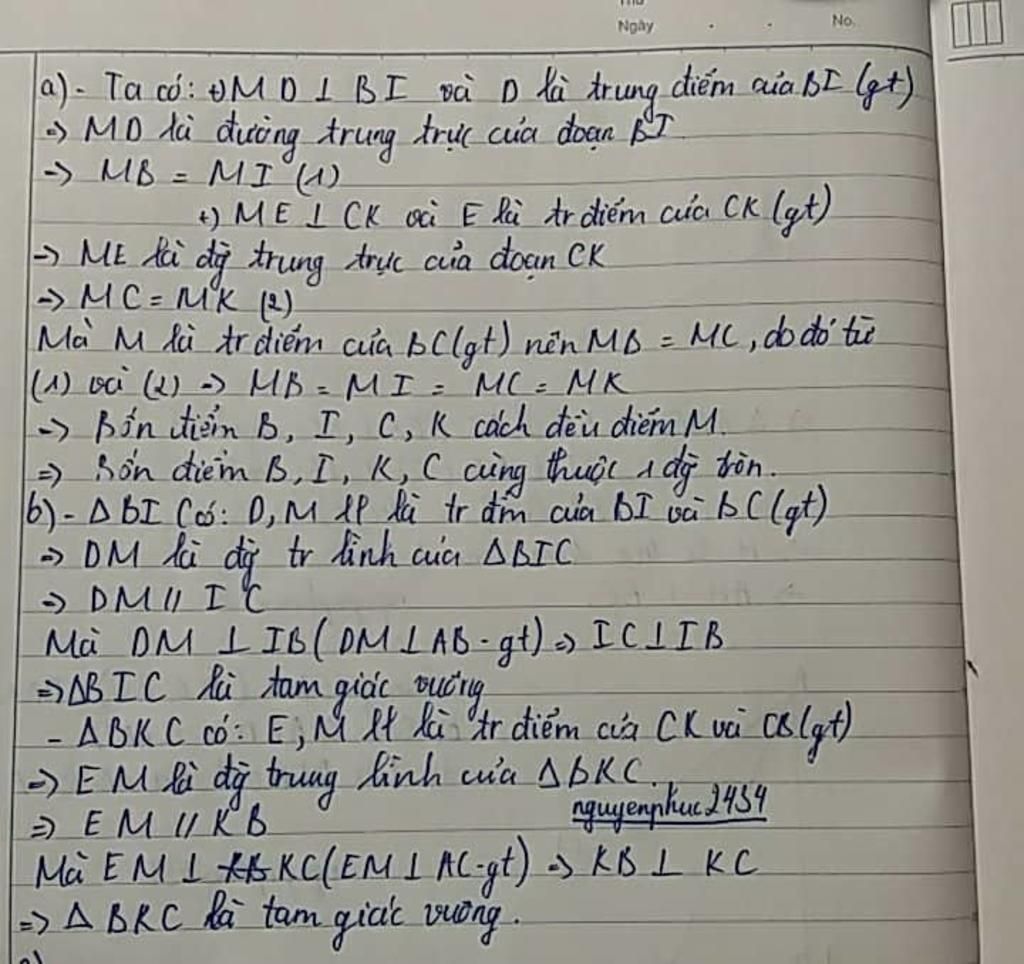 Thứ
Ngày . . No.
a) - Ta có: +) MD ⊥ BI và D là trung điểm của BI (gt)
=> MD là đường trung trực của đoạn BI
=> MB = MI (1)
+) ME ⊥ CK và E là tr điểm của CK (gt)
=> ME là đg̀ trung trực của đoạn CK
=> MC = MK (2)
Mà M là tr điểm của BC (gt) nên MB = MC, do đó từ
(1) và (2) => MB = MI = MC = MK
=> Bốn điểm B, I, C, K cách đều điểm M.
=> Bốn điểm B, I, K, C cùng thuộc 1 đg̀ tròn.
b) - ΔBIC có: D, M lℓ là tr đm của BI và BC (gt)
=> DM là đg̀ tr bình của ΔBIC
=> DM // IC
Mà DM ⊥ IB (DM ⊥ AB - gt) => IC ⊥ IB
=> ΔBIC là tam giác vuông
- ΔBKC có: E, M lℓ là tr điểm của CK và CB (gt)
=> EM là đg̀ trung bình của ΔBKC.
nguyenphuc2434
=> EM // KB
Mà EM ⊥ KC (EM ⊥ AC - gt) => KB ⊥ KC
=> ΔBKC là tam giác vuông.